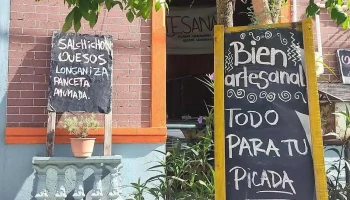 SALCHICHON
QUESOS
LONGANIZA
PANCETA
AHUMADA.
ARTESANAL
Bien
artesanal
TODO
PARA TU
PICADA